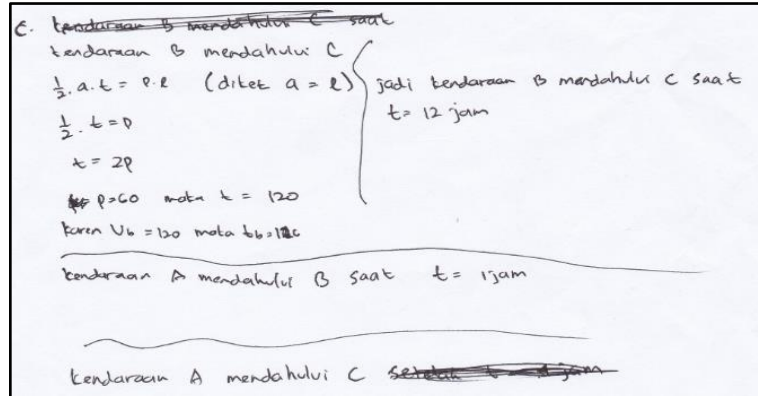 c. kendaraan B mendahului C saat
kendaraan B mendahului C
½. a. t = p.l (diket a = l)
½. t = p
t = 2p
p=60 maka t = 120
karen Vb = 120 maka tb=12
jadi kendaraan B mendahului C saat
t= 12 jam
kendaraan A mendahului B saat t= 1 jam
kendaraan A mendahului C setelah t = 1 jam